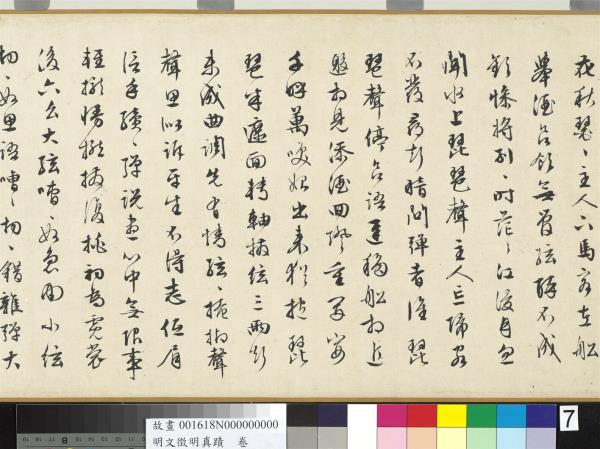 花秋瑟〻主人下馬客在船
舉酒欲飲無管絃醉不成
歡慘將別〻時茫〻江浸月忽
聞水上琵琶聲主人忘歸客
不發尋聲暗問彈者誰琵
琶聲停欲語遲移船相近
邀相見添酒回燈重開宴
千呼萬喚始出來猶抱琵
琶半遮面轉軸撥絃三兩聲
未成曲調先有情絃〻掩抑聲
聲思似訴平生不得志低眉
信手續〻彈說盡心中無限事
輕攏慢撚撥復挑初為霓裳
後六么大絃嘈〻如急雨小絃
切〻如思語嘈〻切〻錯雜彈大
故畫 001618N000000000
明文徵明真蹟 卷
7